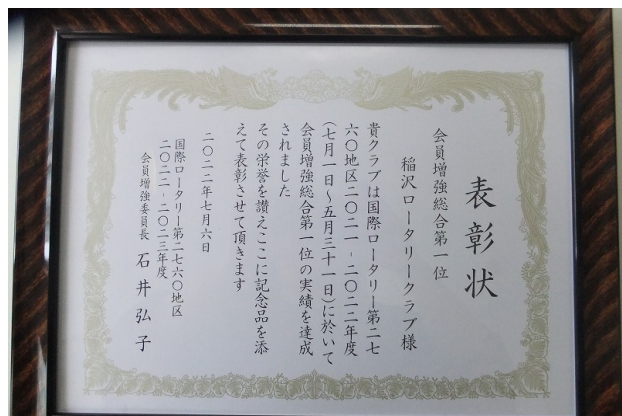 表彰状
会員増強総合第一位
稲沢ロータリークラブ様
貴クラブは国際ロータリー第二七
六〇地区二〇二一-二〇二二年度
(七月一日～五月三十一日)に於いて
会員増強総合第一位の実績を達成
されました
その栄誉を讃えここに記念品を添
えて表彰させて頂きます
二〇二二年七月六日
国際ロータリー第二七六〇地区
二〇二二-二〇二三年度
会員増強委員長 石井弘子